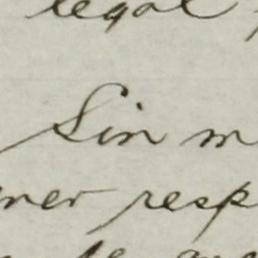 legal
Sin m
ner resp